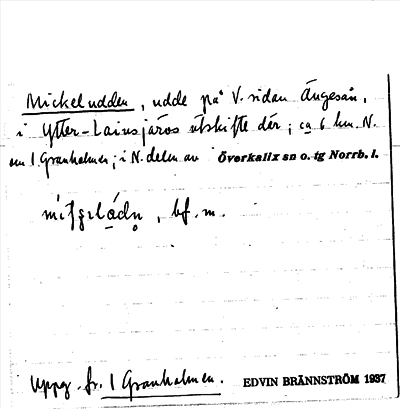 Mickeludden, udde på V. sidan Ängesån,
i Ytter-Lainejäros utskifte där; ca 6 km. N.
om 1. Granholmen; i N. delen av Överkalix sn o. tg Norrb. l.
bf. m.
Uppg. fr. 1 Granholmen. EDVIN BRÄNNSTRÖM 1937